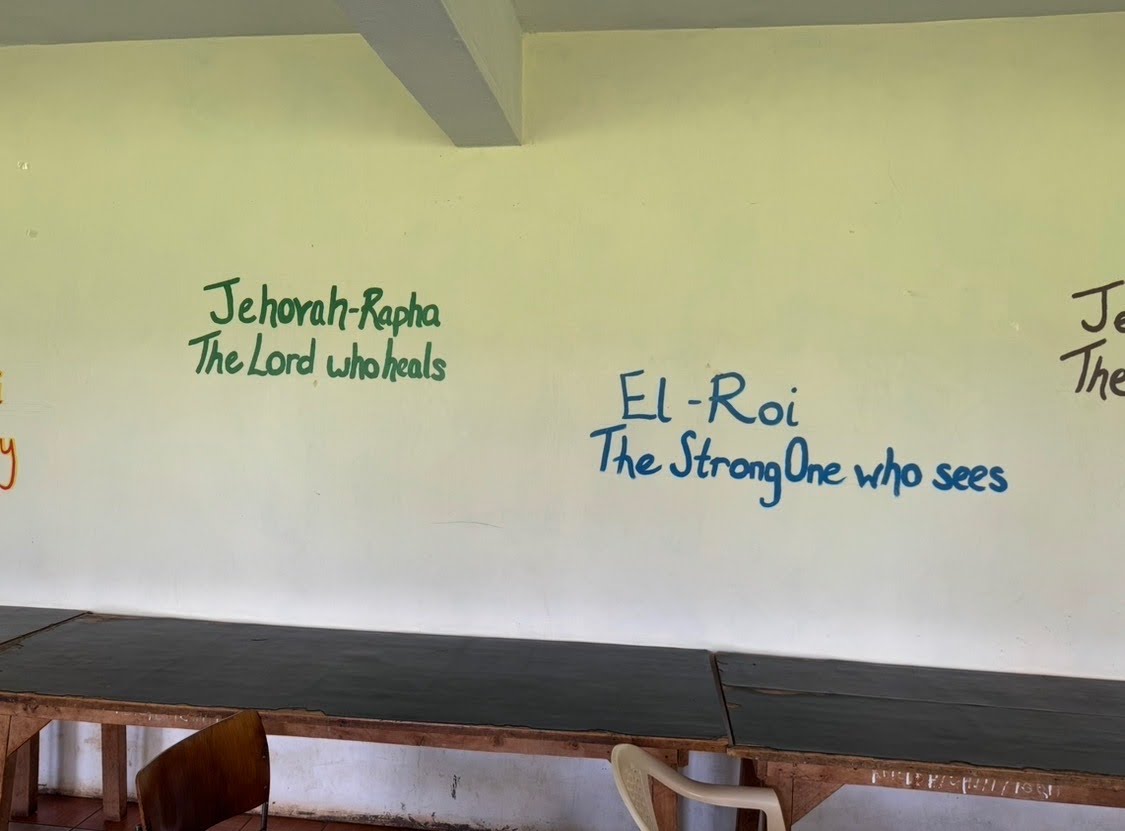 Jehovah-Rapha
The Lord who heals
El -Roi
The Strong One who sees
The